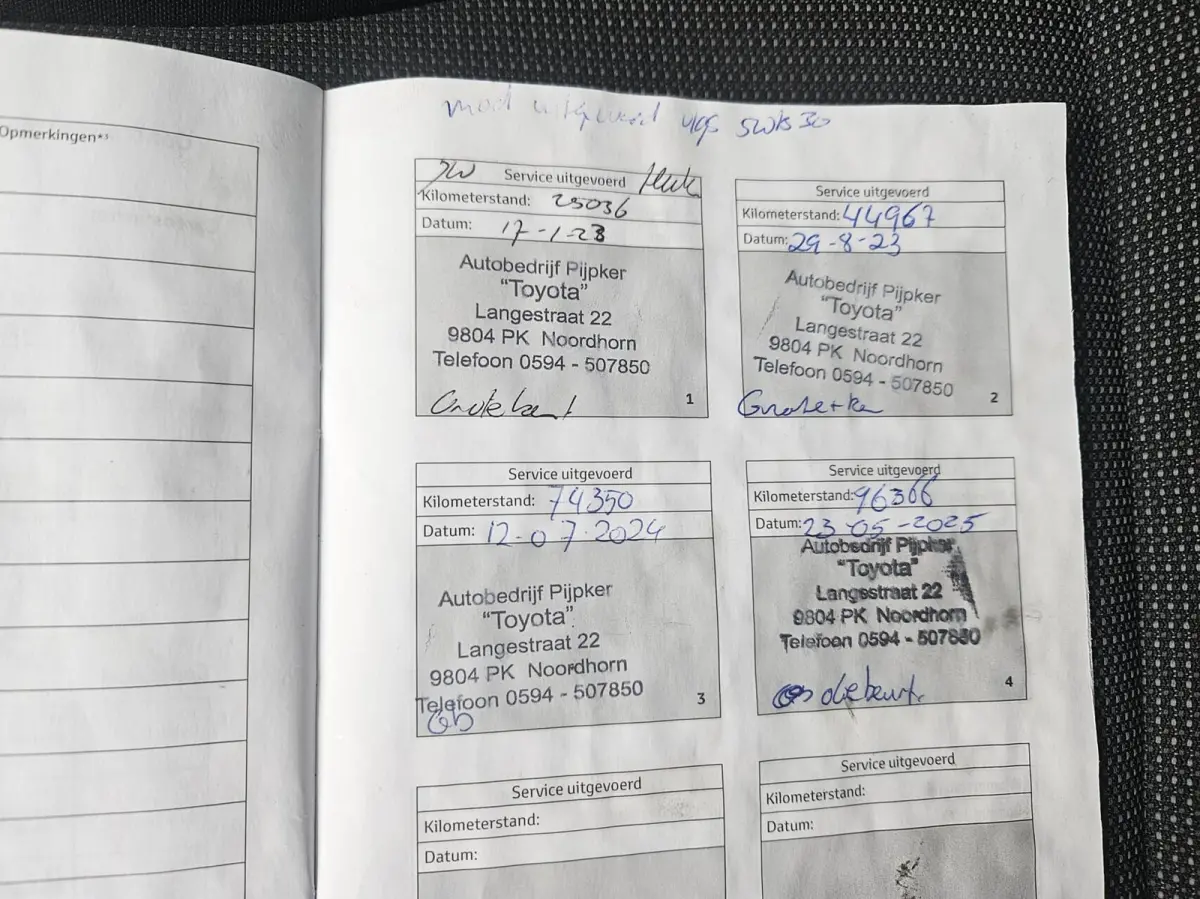 Opmerkingen*⁾
uitgevoerd
Service uitgevoerd
Kilometerstand: 25036
Datum: 17-1-23
Autobedrijf Pijpker
"Toyota"
Langestraat 22
9804 PK Noordhorn
Telefoon 0594 - 507850
1
Service uitgevoerd
Kilometerstand: 44967
Datum: 29-8-23
Autobedrijf Pijpker
"Toyota"
Langestraat 22
9804 PK Noordhorn
Telefoon 0594 - 507850
2
Service uitgevoerd
Kilometerstand: 74350
Datum: 12-07-2024
Autobedrijf Pijpker
"Toyota"
Langestraat 22
9804 PK Noordhorn
Telefoon 0594 - 507850
3
Service uitgevoerd
Kilometerstand: 96366
Datum: 23-05-2025
Autobedrijf Pijpker
"Toyota"
Langestraat 22
9804 PK Noordhorn
Telefoon 0594 - 507850
4
Service uitgevoerd
Kilometerstand:
Datum:
Service uitgevoerd
Kilometerstand:
Datum: